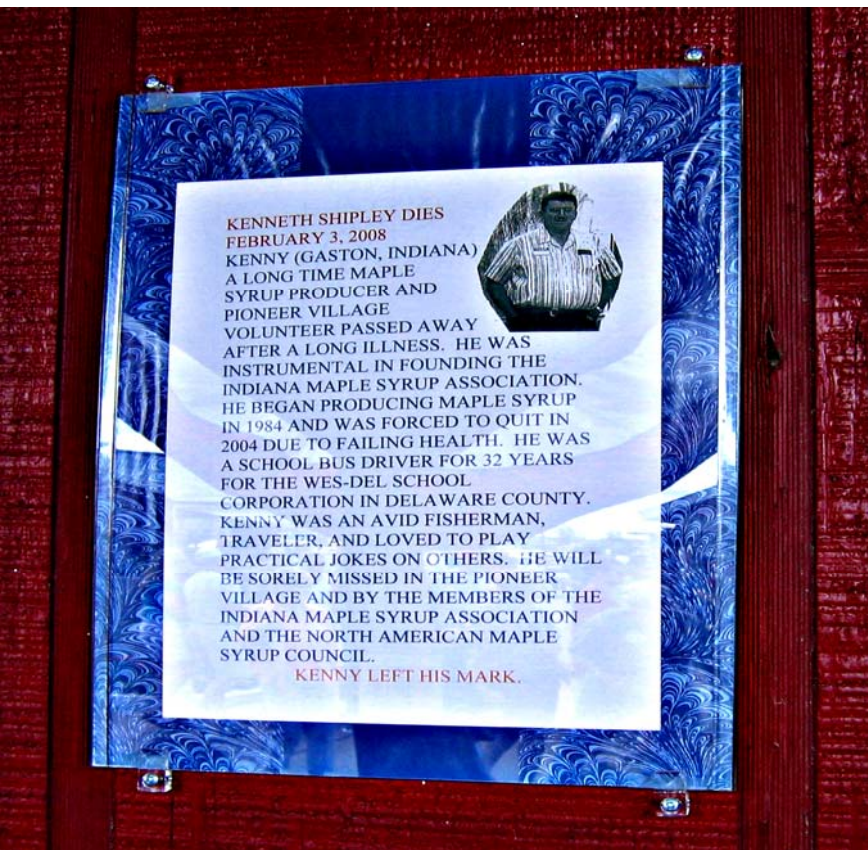 KENNETH SHIPLEY DIES
FEBRUARY 3, 2008
KENNY (GASTON, INDIANA)
A LONG TIME MAPLE
SYRUP PRODUCER AND
PIONEER VILLAGE
VOLUNTEER PASSED AWAY
AFTER A LONG ILLNESS. HE WAS
INSTRUMENTAL IN FOUNDING THE
INDIANA MAPLE SYRUP ASSOCIATION.
HE BEGAN PRODUCING MAPLE SYRUP
IN 1984 AND WAS FORCED TO QUIT IN
2004 DUE TO FAILING HEALTH. HE WAS
A SCHOOL BUS DRIVER FOR 32 YEARS
FOR THE WES-DEL SCHOOL
CORPORATION IN DELAWARE COUNTY.
KENNY WAS AN AVID FISHERMAN,
TRAVELER, AND LOVED TO PLAY
PRACTICAL JOKES ON OTHERS. HE WILL
BE SORELY MISSED IN THE PIONEER
VILLAGE AND BY THE MEMBERS OF THE
INDIANA MAPLE SYRUP ASSOCIATION
AND THE NORTH AMERICAN MAPLE
SYRUP COUNCIL.
KENNY LEFT HIS MARK.